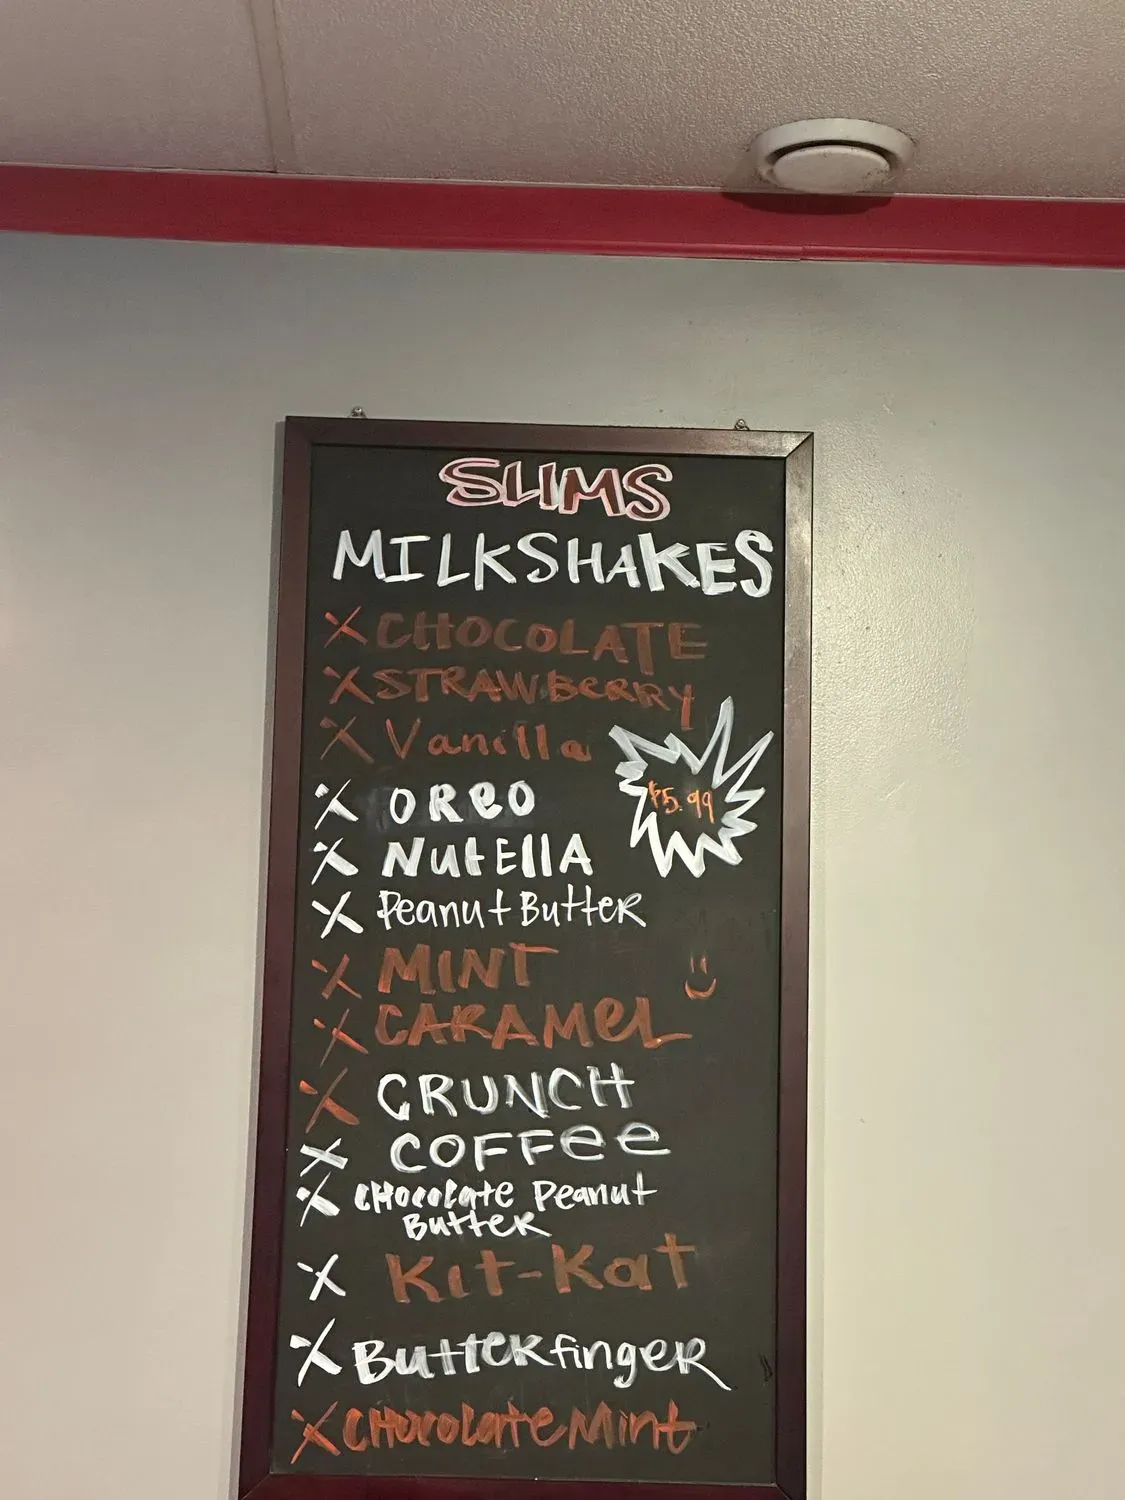 SLIMS
MILKSHAKES
X CHOCOLATE
X STRAWBeRRY
X Vanilla
X OReO
$5.99
X NutEllA
X Peanut ButteR
X MINT
X CARAMeL
X CRUNCH
X COFFee
X CHocolate Peanut
ButteR
X Kit-Kat
X ButteRfingeR
X CHocolate Mint